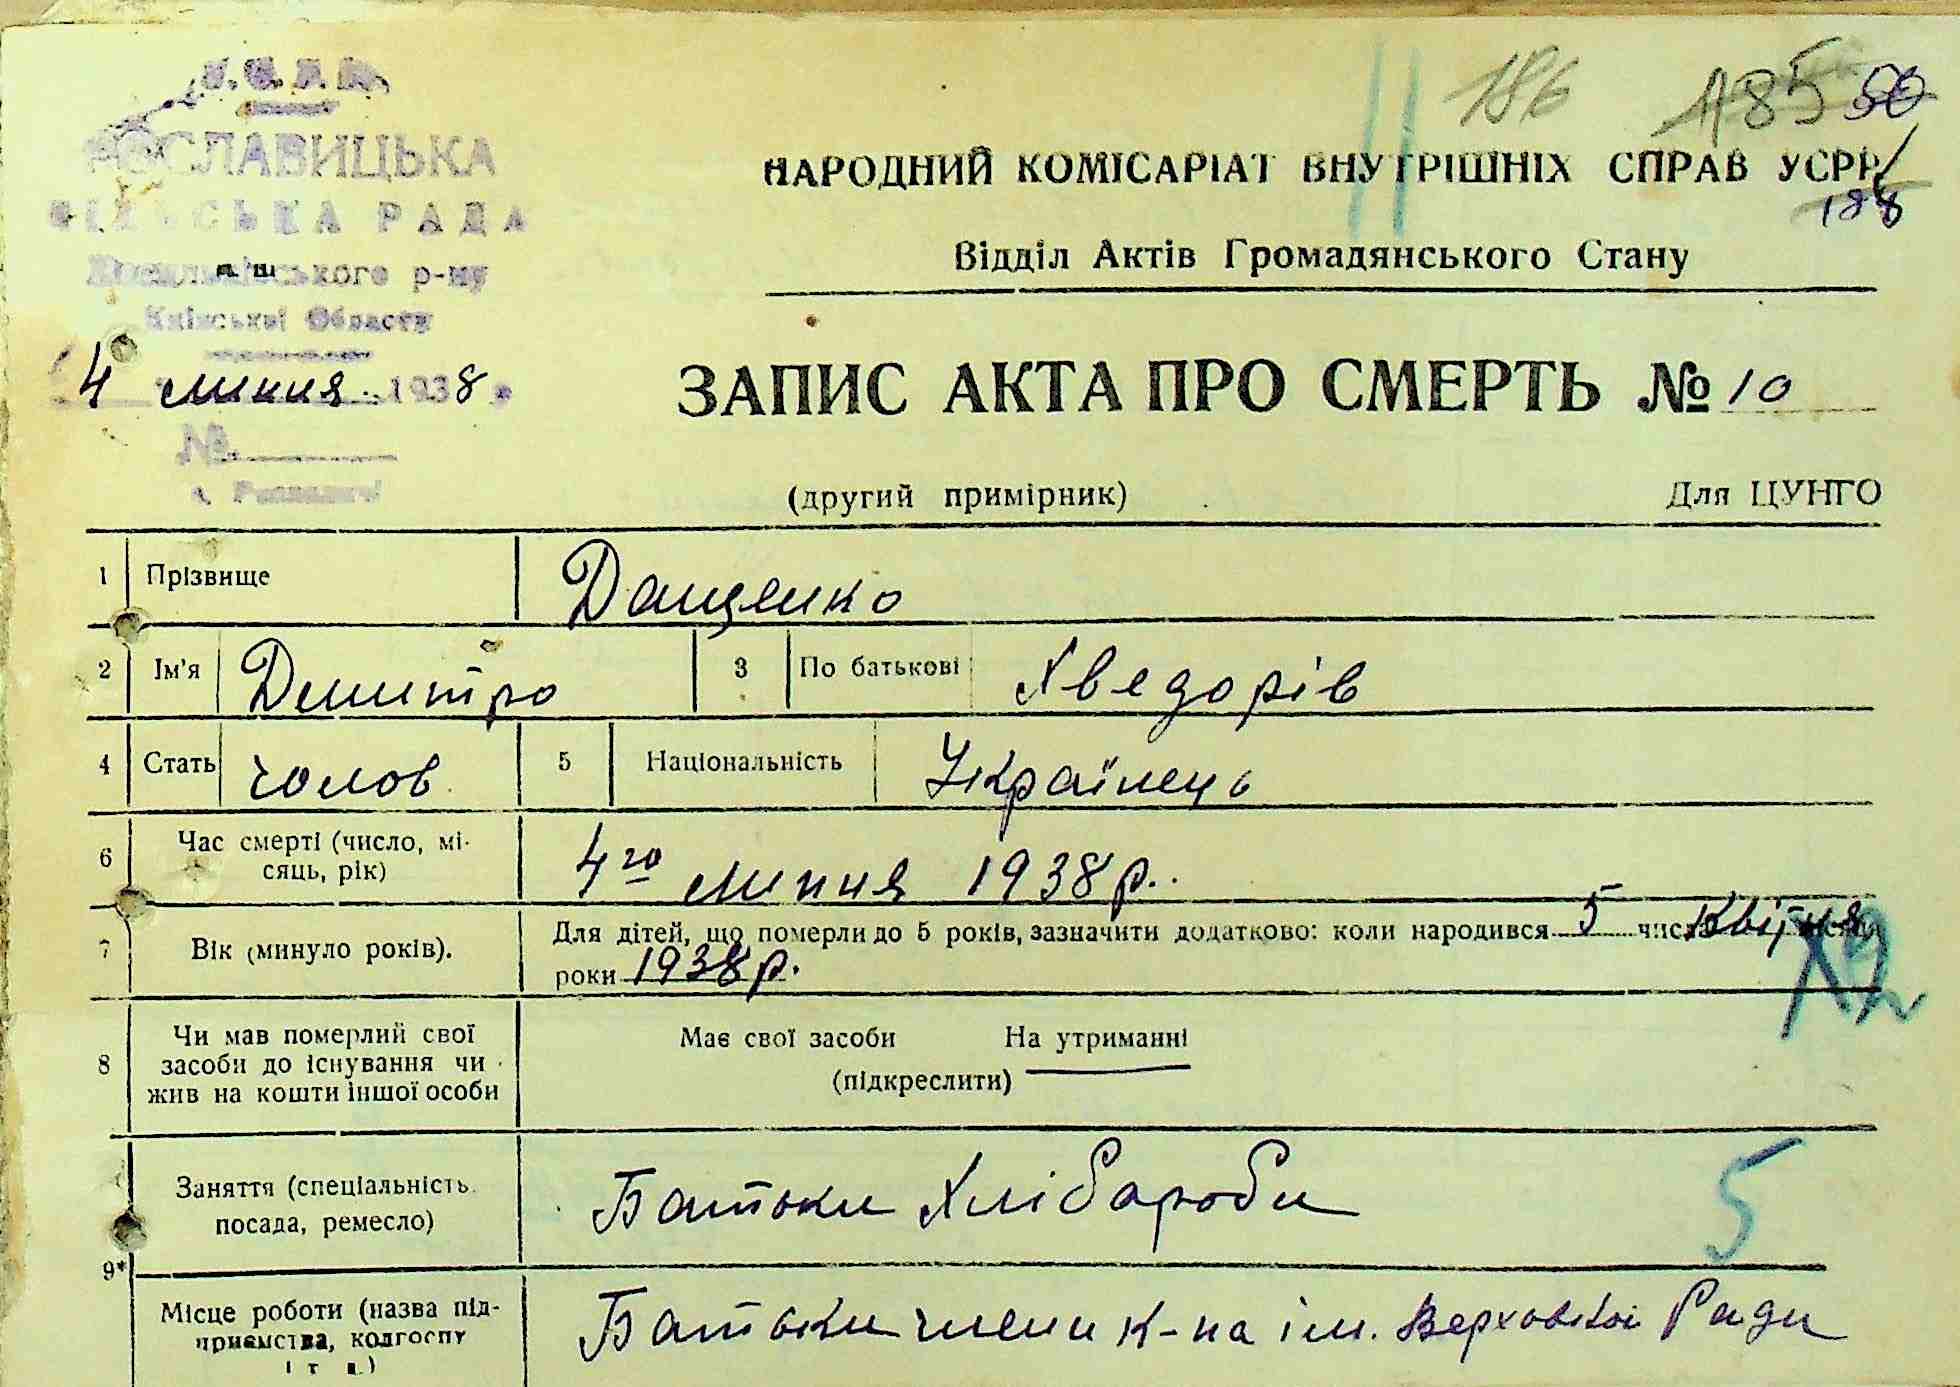 У.С.Р.Р.
РОСЛАВИЦЬКА
СІЛЬСЬКА РАДА
Васильківського р-ну
Київської Області
4 липня 1938 р.
№
с. Рославичі
186 185 50
188
НАРОДНИЙ КОМІСАРІАТ ВНУТРІШНІХ СПРАВ УСРР
Відділ Актів Громадянського Стану
ЗАПИС АКТА ПРО СМЕРТЬ № 10
(другий примірник) Для ЦУНГО
1 Прізвище Дащенко
2 Ім'я Демитро 3 По батькові Хведорів
4 Стать чолов. 5 Національність Українець
6 Час смерті (число, мі-
сяць, рік) 4го липня 1938 р.
7 Вік (минуло років). Для дітей, що померли до 5 років, зазначити додатково: коли народився 5 числа Квітня
роки 1938 р.
8 Чи мав померлий свої
засоби до існування чи
жив на кошти іншої особи
Має свої засоби На утриманні
(підкреслити)
Заняття (спеціальність
посада, ремесло) Батьки Хлібороби
5
9*
Місце роботи (назва під-
приємства, колгоспу
і т. д.) Батьки члени к-па ім. Верховної Ради